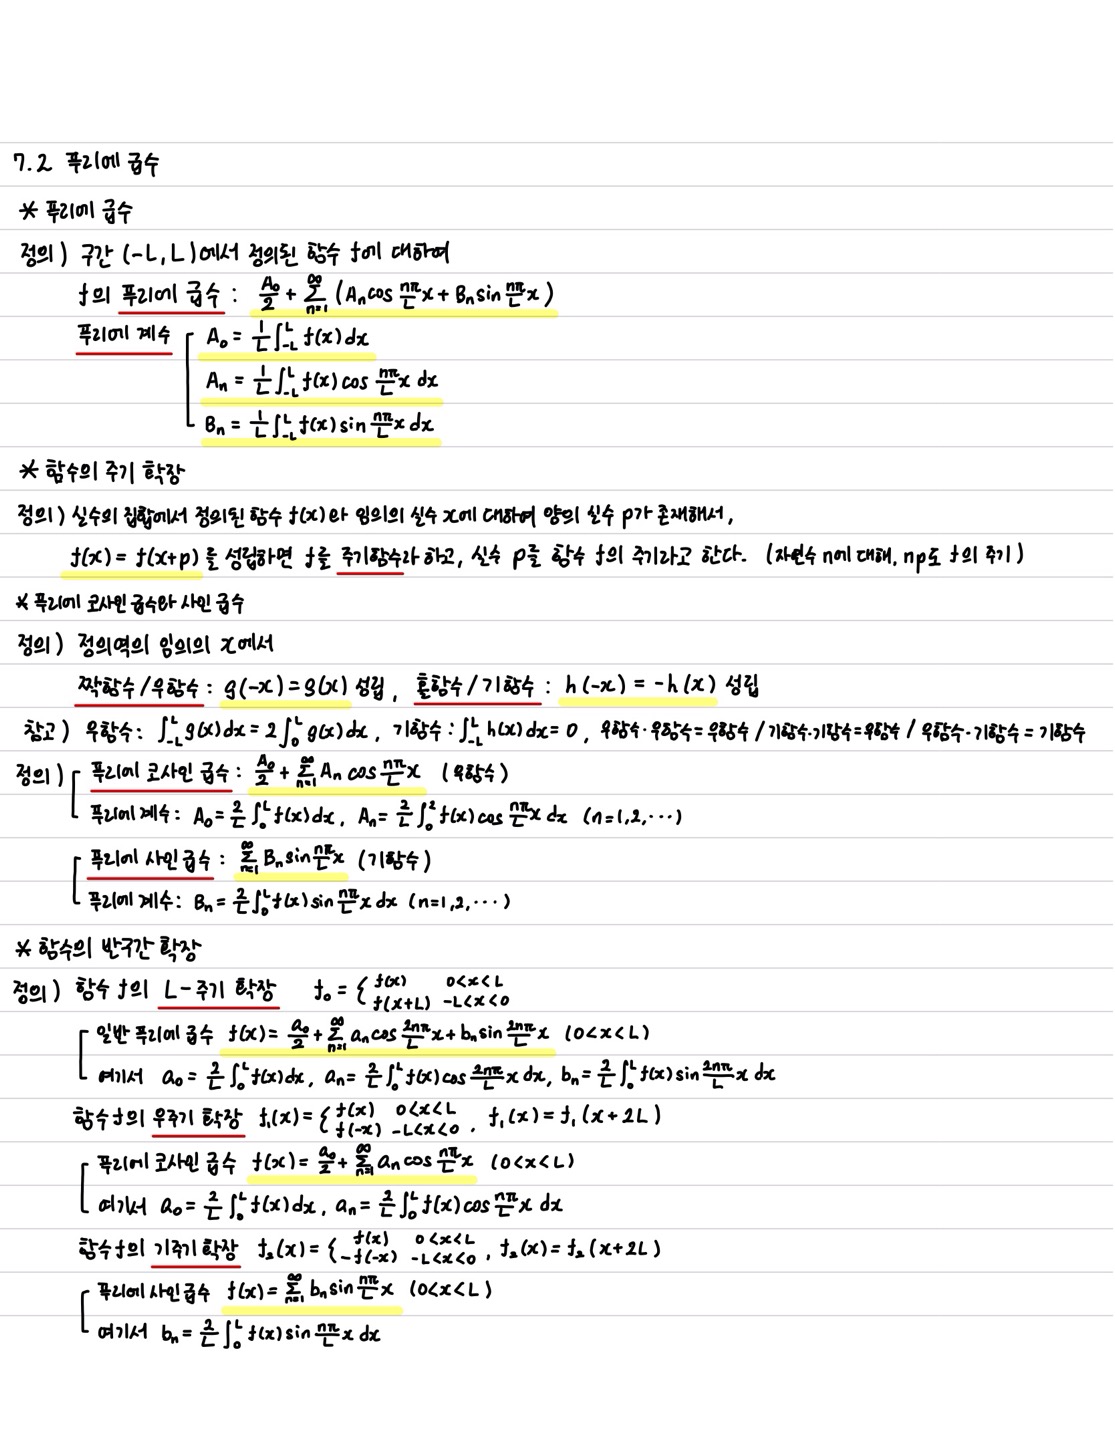 7.2 푸리에 급수
* 푸리에 급수
정의) 구간 (-L, L)에서 정의된 함수 f에 대하여
f의 푸리에 급수 : A₀/2 + ∑_{n=1}^{∞} (Aₙcos nπ/L x + Bₙsin nπ/L x)
푸리에 계수 [ A₀ = 1/L ∫_{-L}^{L} f(x)dx
Aₙ = 1/L ∫_{-L}^{L} f(x) cos nπ/L x dx
Bₙ = 1/L ∫_{-L}^{L} f(x) sin nπ/L x dx
* 함수의 주기 확장
정의) 실수의 집합에서 정의된 함수 f(x)와 임의의 실수 x에 대하여 양의 실수 p가 존재해서,
f(x) = f(x+p) 를 성립하면 f를 주기함수라 하고, 실수 p를 함수 f의 주기라고 한다. (자연수 n에 대해, np도 f의 주기)
* 푸리에 코사인 급수와 사인 급수
정의) 정의역의 임의의 x에서
짝함수/우함수 : g(-x) = g(x) 성립, 홀함수/기함수 : h(-x) = -h(x) 성립
참고) 우함수 : ∫_{-L}^{L} g(x)dx = 2∫_{0}^{L} g(x)dx, 기함수 : ∫_{-L}^{L} h(x)dx = 0, 우함수·우함수=우함수 / 기함수·기함수=우함수 / 우함수·기함수 = 기함수
정의) [ 푸리에 코사인 급수 : A₀/2 + ∑_{n=1}^{∞} Aₙ cos nπ/L x (우함수)
푸리에 계수 : A₀ = 2/L ∫_{0}^{L} f(x)dx, Aₙ = 2/L ∫_{0}^{2} f(x) cos nπ/L x dx (n=1,2,···)
[ 푸리에 사인 급수 : ∑_{n=1}^{∞} Bₙ sin nπ/L x (기함수)
푸리에 계수 : Bₙ = 2/L ∫_{0}^{L} f(x) sin nπ/L x dx (n=1,2,···)
* 함수의 반구간 확장
정의) 함수 f의 L-주기 확장 f₀ = { f(x) 0<x<L
f(x+L) -L<x<0
[ 일반 푸리에 급수 f(x) = a₀/2 + ∑_{n=1}^{∞} aₙ cos 2nπ/L x + bₙ sin 2nπ/L x (0<x<L)
여기서 a₀ = 2/L ∫_{0}^{L} f(x)dx, aₙ = 2/L ∫_{0}^{L} f(x) cos 2nπ/L x dx, bₙ = 2/L ∫_{0}^{L} f(x) sin 2nπ/L x dx
함수 f의 우주기 확장 f₁(x) = { f(x) 0<x<L
f(-x) -L<x<0 , f₁(x) = f₁(x+2L)
[ 푸리에 코사인 급수 f(x) = a₀/2 + ∑_{n=1}^{∞} aₙ cos nπ/L x (0<x<L)
여기서 a₀ = 2/L ∫_{0}^{L} f(x)dx, aₙ = 2/L ∫_{0}^{L} f(x) cos nπ/L x dx
함수 f의 기주기 확장 f₂(x) = { f(x) 0<x<L
-f(-x) -L<x<0 , f₂(x) = f₂(x+2L)
[ 푸리에 사인 급수 f(x) = ∑_{n=1}^{∞} bₙ sin nπ/L x (0<x<L)
여기서 bₙ = 2/L ∫_{0}^{L} f(x) sin nπ/L x dx